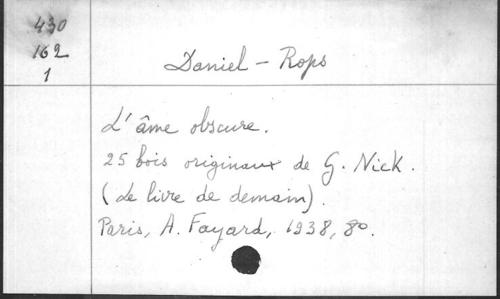 430
162
1
Daniel - Rops
L'âme obscure.
25 bois originaux de G. Nick.
(Le livre de demain).
Paris, A. Fayard, 1938, 8o.